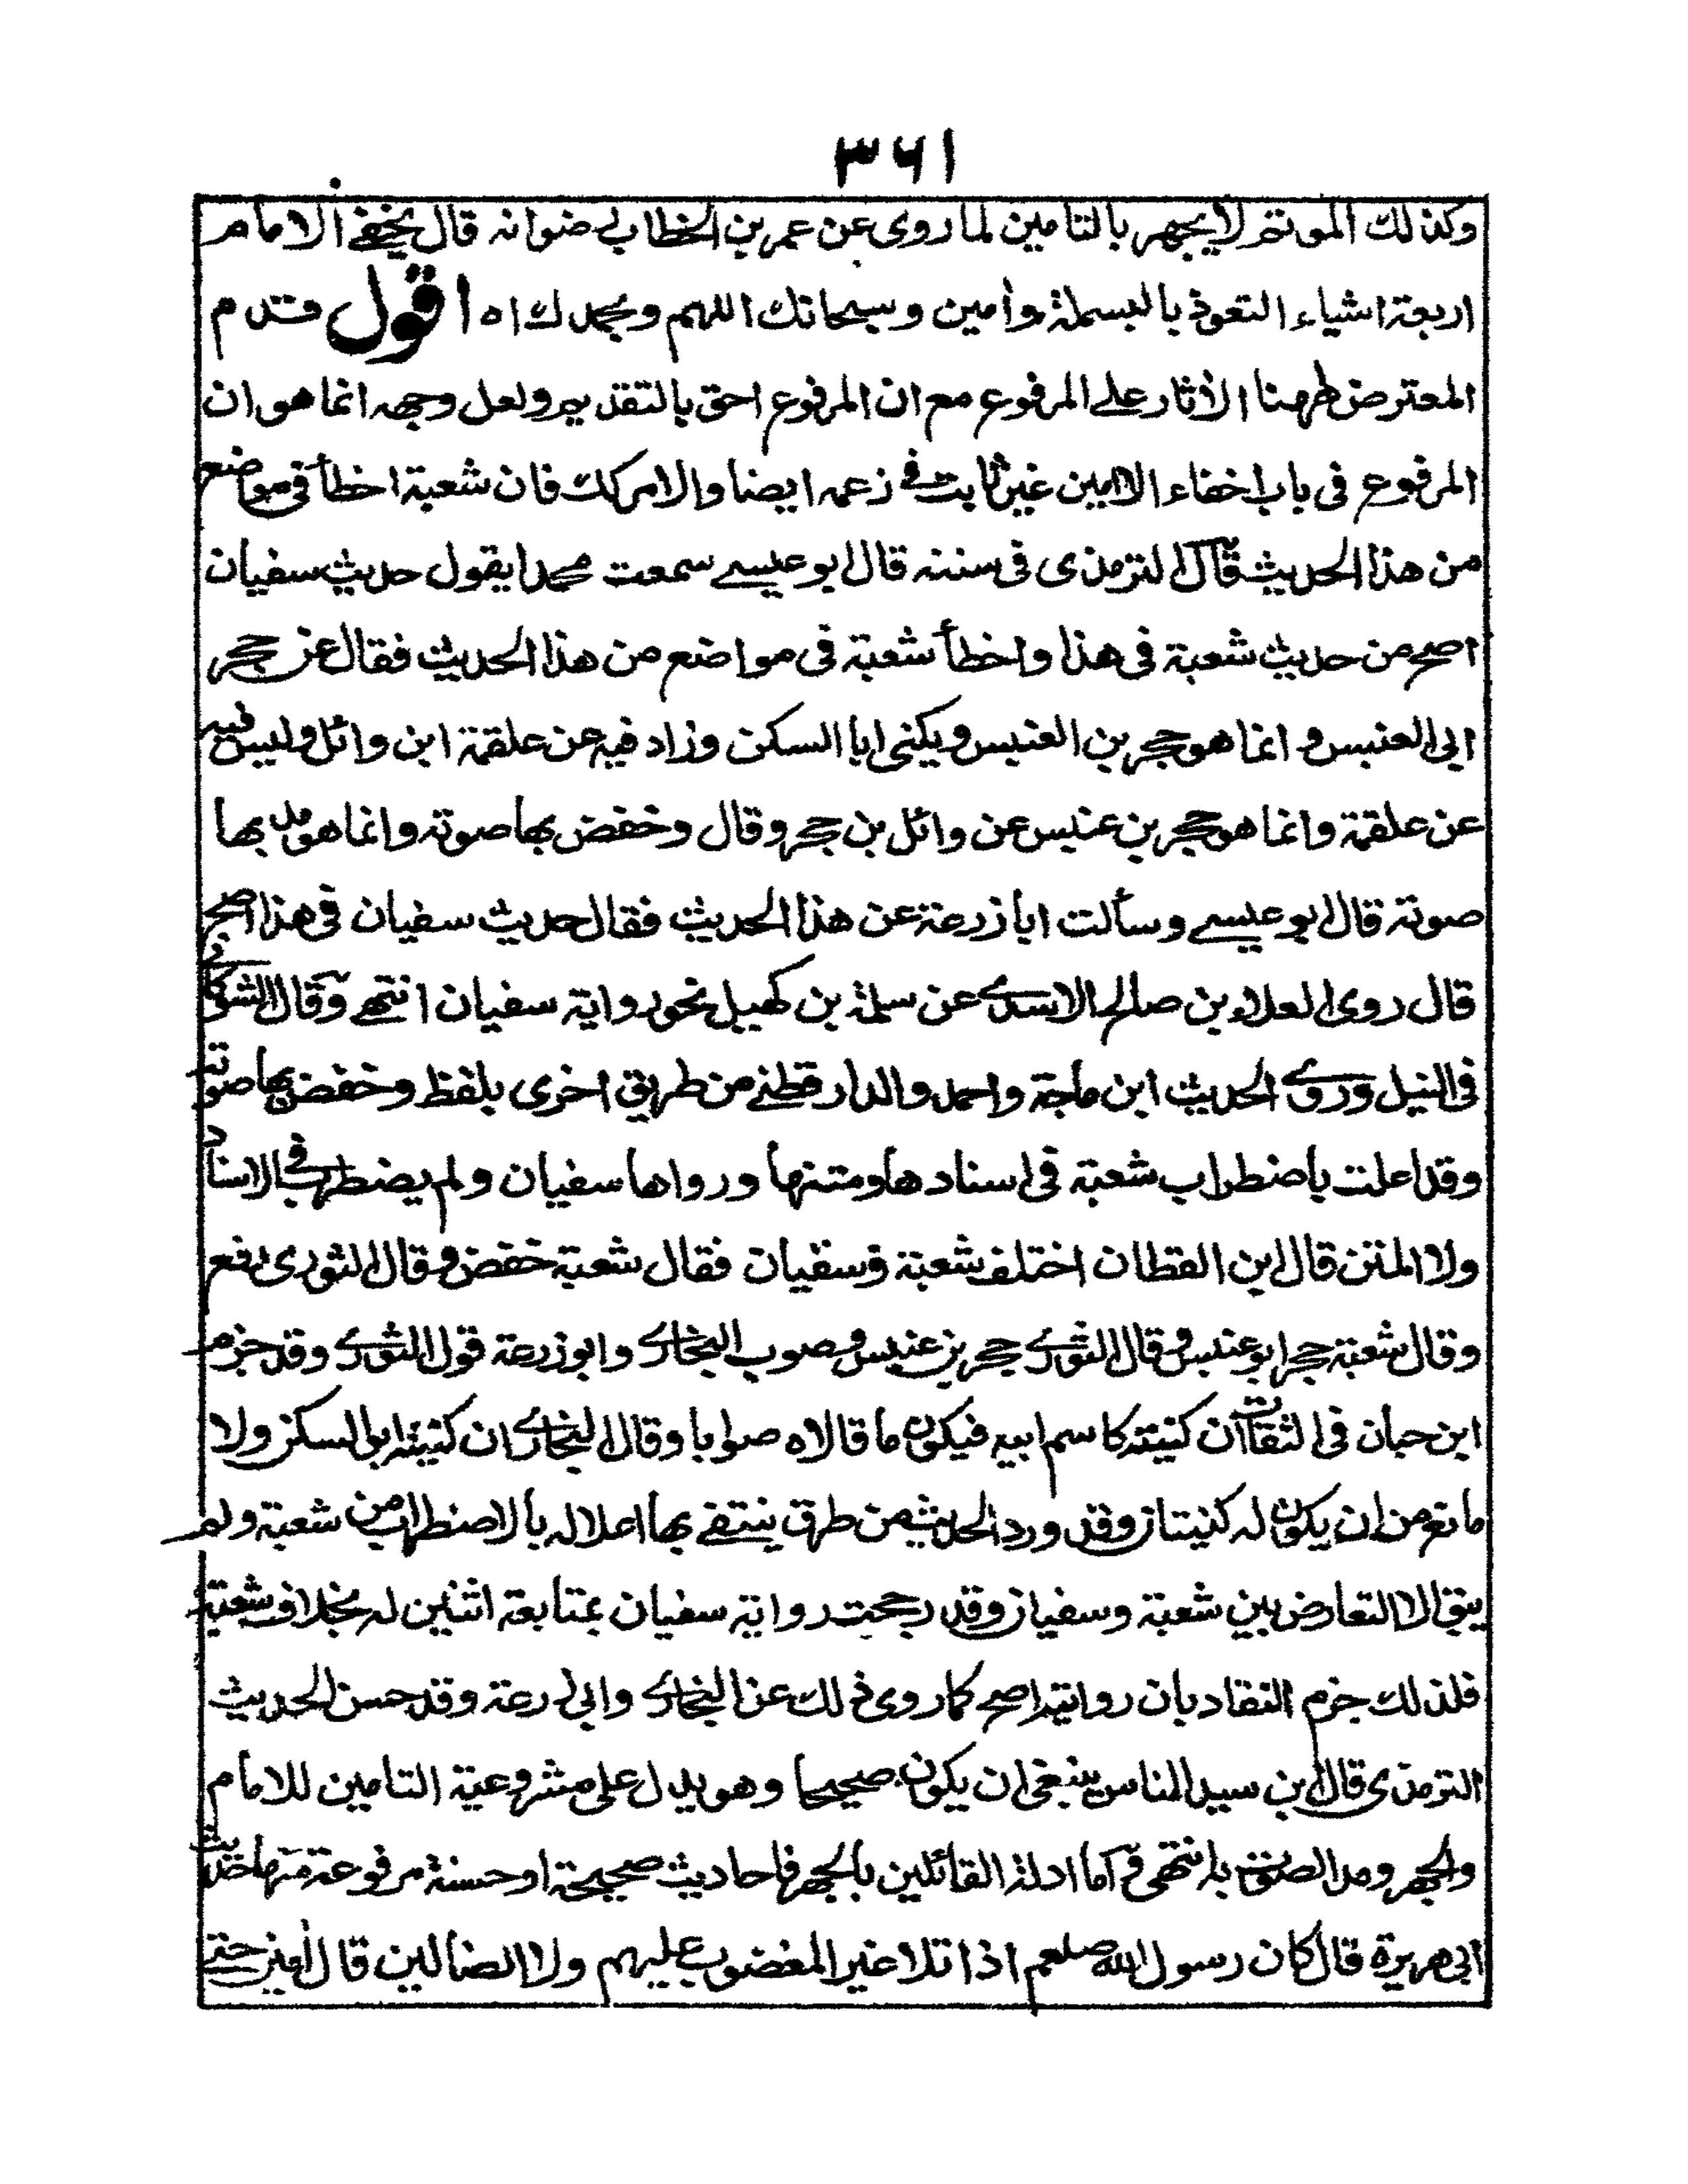 ٣٦١
وكذلك الموتم لا يجهر بالتامين لما روى عن عمر بن الخطاب رضوانه قال يخفے الامام
اربعة اشياء التعوذ بالبسملة وأمين وسبحانك اللهم وبحمدك اه اقول قدم
المعترض ههنا الأثار علے المرفوع مع ان المرفوع احق بالتقديم ولعل وجهه انما هو ان
المرفوع فى باب اخفاء الامين غير ثابت فے زعمه ايضا والامر كك فان شعبة اخطأ فى مواضع
من هذا الحديث قال الترمذى فى سننه قال ابو عيسے سمعت محمدا يقول حديث سفيان
اصح من حديث شعبة فى هذا واخطأ شعبة فى مواضع من هذا الحديث فقال عن حجر
ابى العنبس و انما هو حجر بن العنبس ويكنى ابا السكن وزاد فيه عن علقمة ابن وائل وليس فيه
عن علقمة وانما هو حجر بن عنبس عن وائل بن حجر وقال وخفض بها صوته وانما هو مد بها
صوته قال ابو عيسے وسألت ابا زرعة عن هذا الحديث فقال حديث سفيان فى هذا اصح
قال روى العلاء بن صالح الاسدے عن سلمة بن كهيل نحو رواية سفيان انتهے وقال الشوكانے
فى النيل وروے الحديث ابن ماجة واحمد والدارقطنے من طريق اخرى بلفظ وخفض بها صوته
وقد اعلت باضطراب شعبة فى اسنادها ومتنها ورواها سفيان ولم يضطرب فى الاسناد
ولا المتن قال ابن القطان اختلف شعبة وسفيان فقال شعبة خفض وقال الثورى رفع
وقال شعبة حجر ابو عنبس وقال الثورے حجر بن عنبس وصوب البخارے وابو زرعة قول الثورے وقد جزم
ابن حبان فى الثقات ان كنيته كاسم ابيه فيكون ما قالاه صوابا وقال البخارے ان كنيته ابو السكن ولا
مانع من ان يكون له كنيتان وقد ورد الحديث من طرق ينتفے بها اعلاله بالاضطراب من شعبة ولم
يبق الا التعارض بين شعبة وسفيان وقد رجحت رواية سفيان بمتابعة اثنين له بخلاف شعبة
فلذلك جزم النقاد بان روايته اصح كما روى ذلك عن البخارے وابى زرعة وقد حسن الحديث
الترمذى قال ابن سيد الناس ينبغى ان يكون صحيحا وهو يدل على مشروعية التامين للامام
والجهر ومد الصوت به انتهى و اما ادلة القائلين بالجهر فاحاديث صحيحة او حسنة مرفوعة منها حديث
ابى هريرة قال كان رسول الله صلعم اذا تلا غير المغضوب عليهم ولا الضالين قال أمين حتے